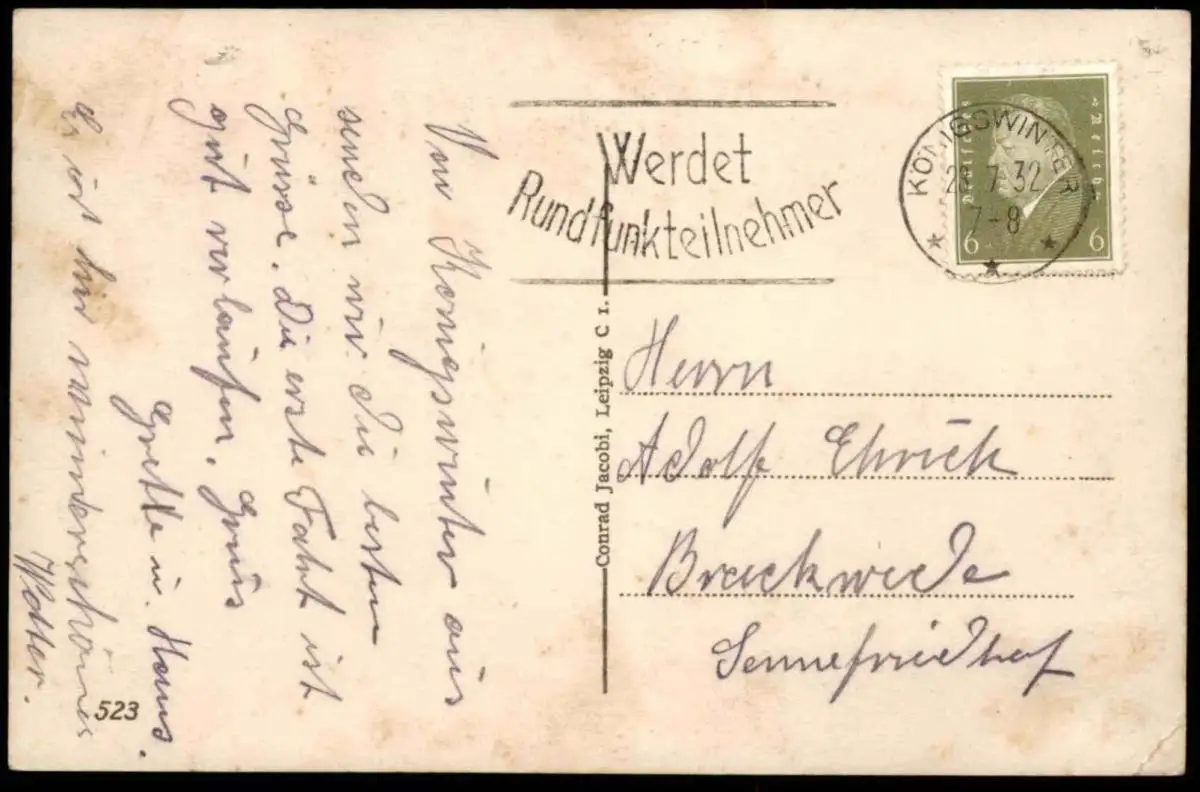 Von Königswinter aus
senden wir die besten
Grüsse. Die erste Fahrt ist
gut verlaufen. Gruss
Grette u. Hans.
Es ist hier wunderschönes
Wetter.
523
Conrad Jacobi, Leipzig C 1.
Werdet
Rundfunkteilnehmer
KÖNIGSWINTER
28.7.32
7-8
Deutsches Reich
6 6
Herrn
Adolf Ehrich
Brackwede
Sennefriedhof